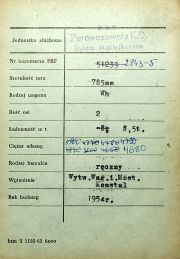 Jednostka służbowa
Parowozownia K.D.
Nr inwentarza PKP 51239 2843-S
Szerokość toru 785mm
Rodzaj wagonu Wh
Ilość osi 2
Ładowność w t. 8t 8,5t.
Ciężar własny
4680
Rodzaj hamulca ręczny
Wytwórnia Wytw.Wag.i Most.
Konstal
Rok budowy 1954r.